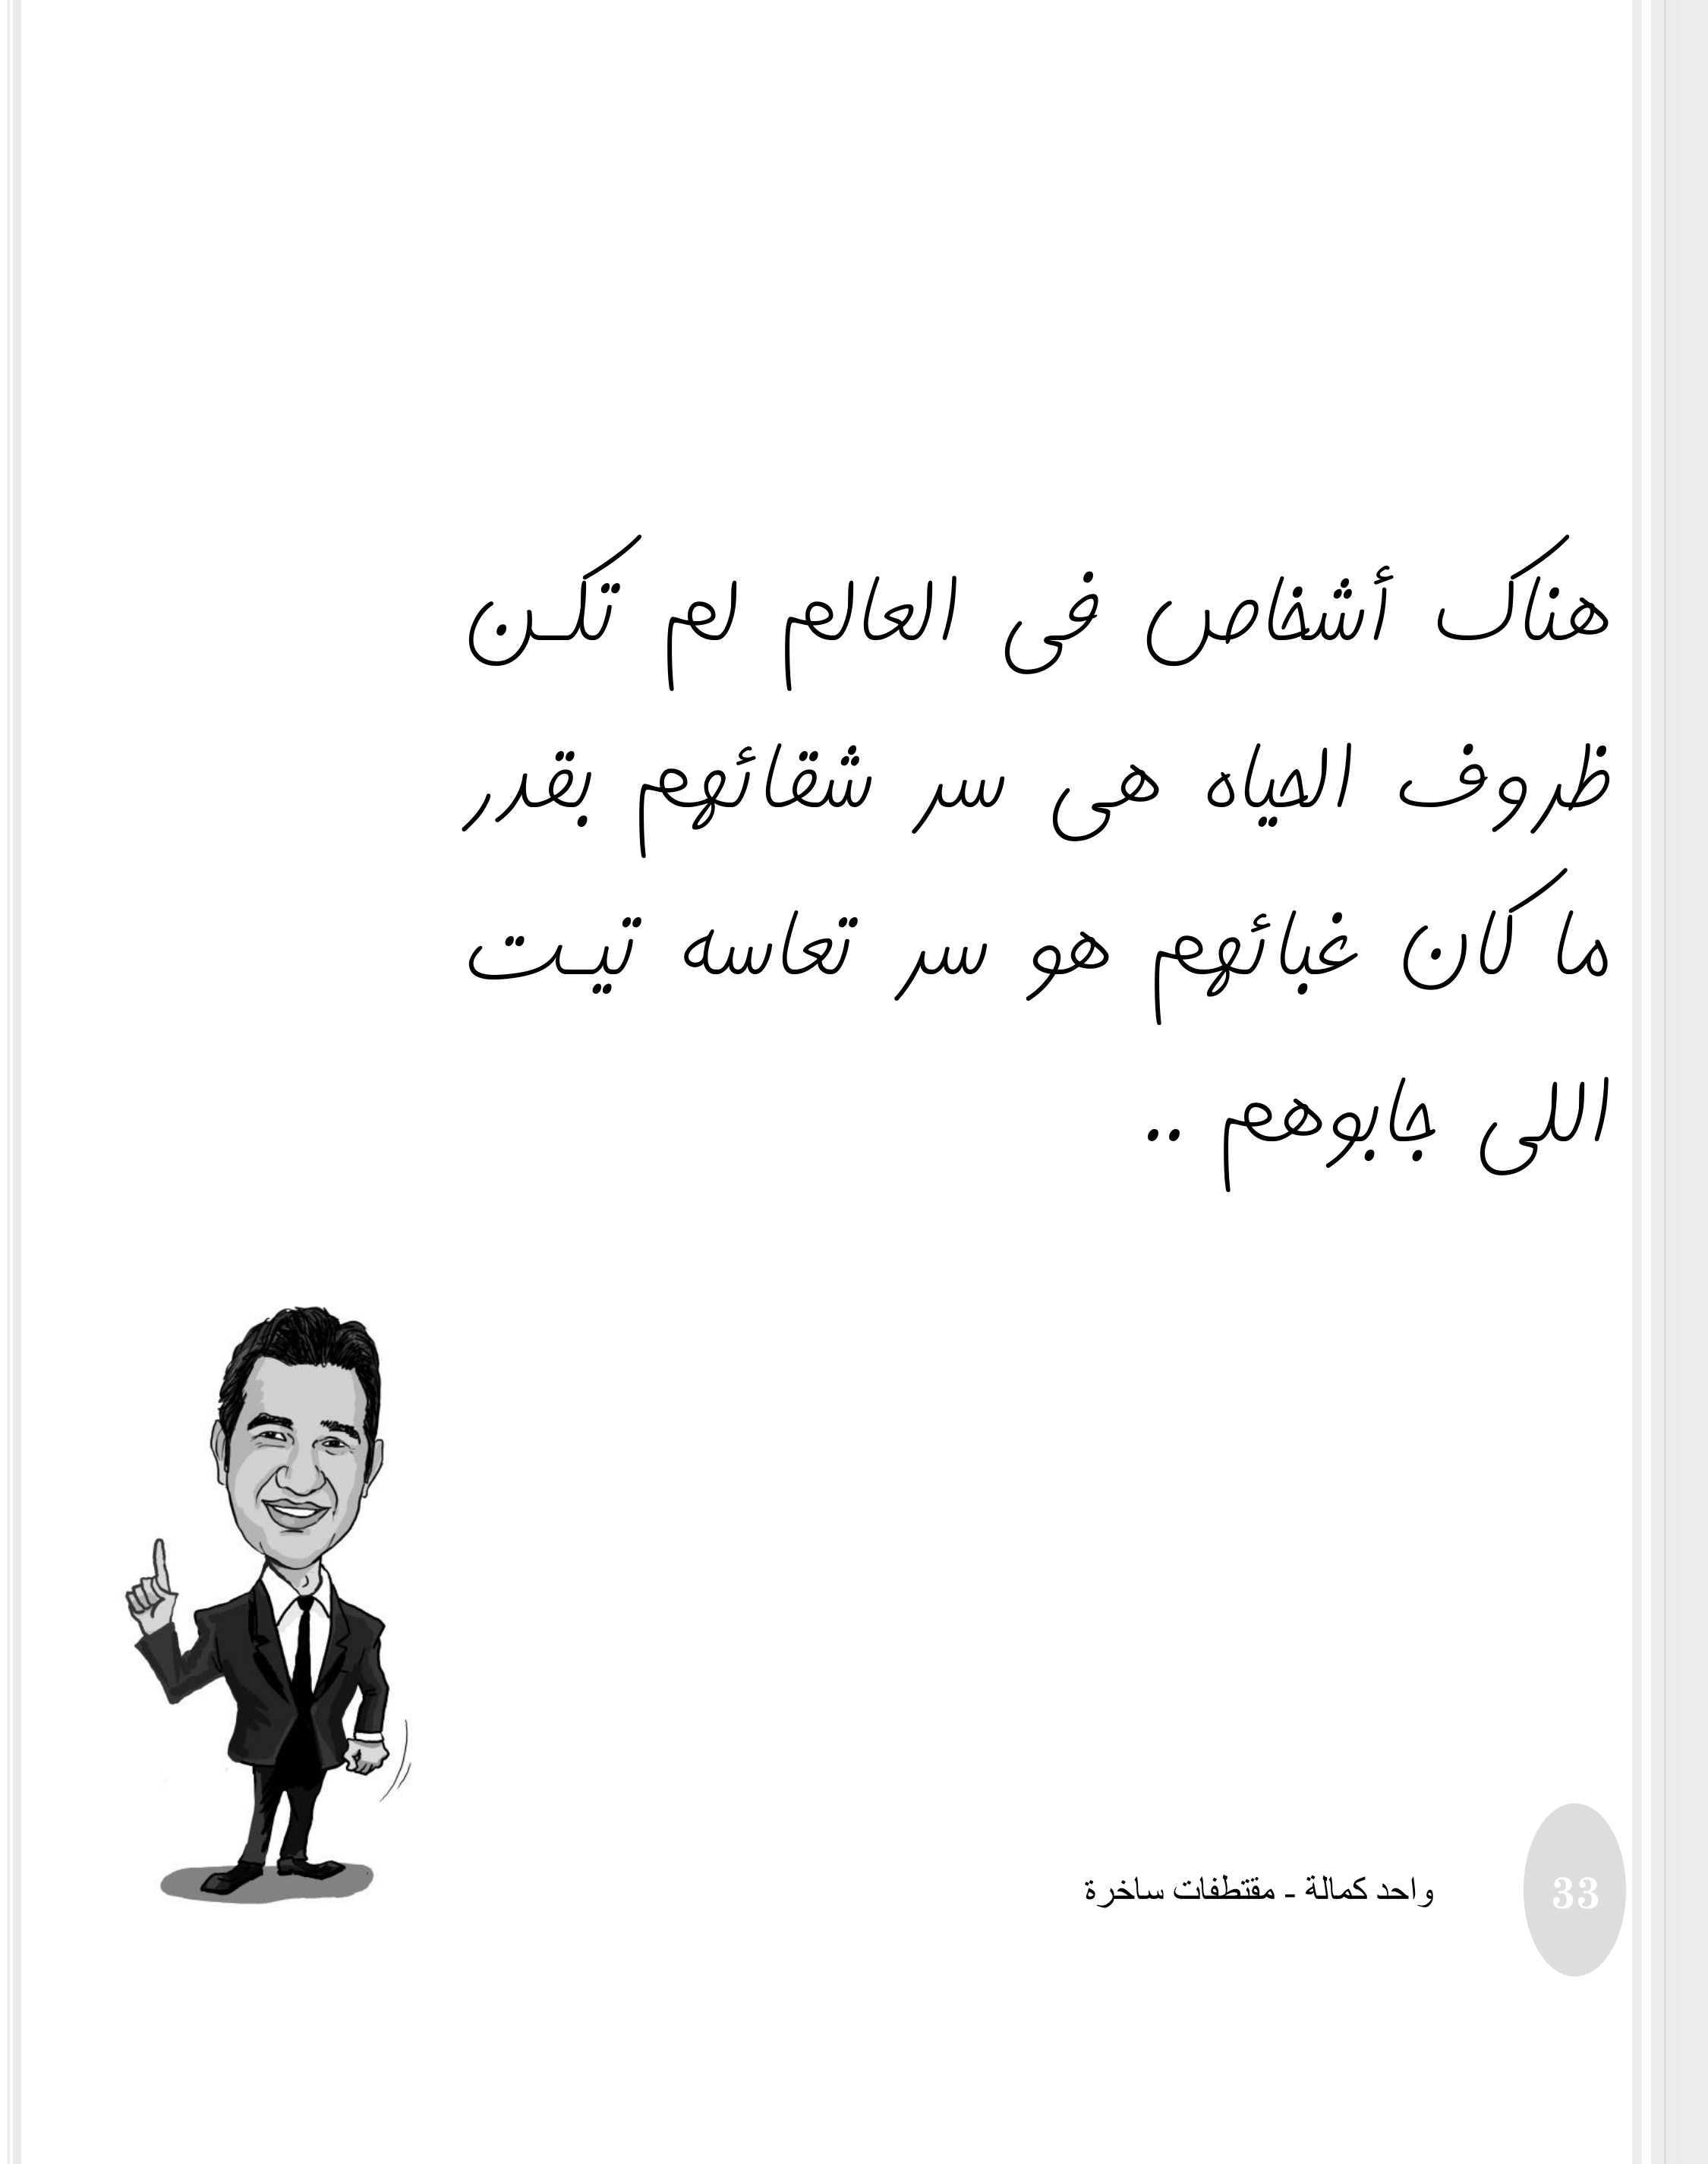 هناك أشخاص فى العالم لم تكن
ظروف الحياه هى سر شقائهم بقدر
ما كان غبائهم هو سر تعاسه تيت
اللى جابوهم ..
واحد كمالة - مقتطفات ساخرة
33